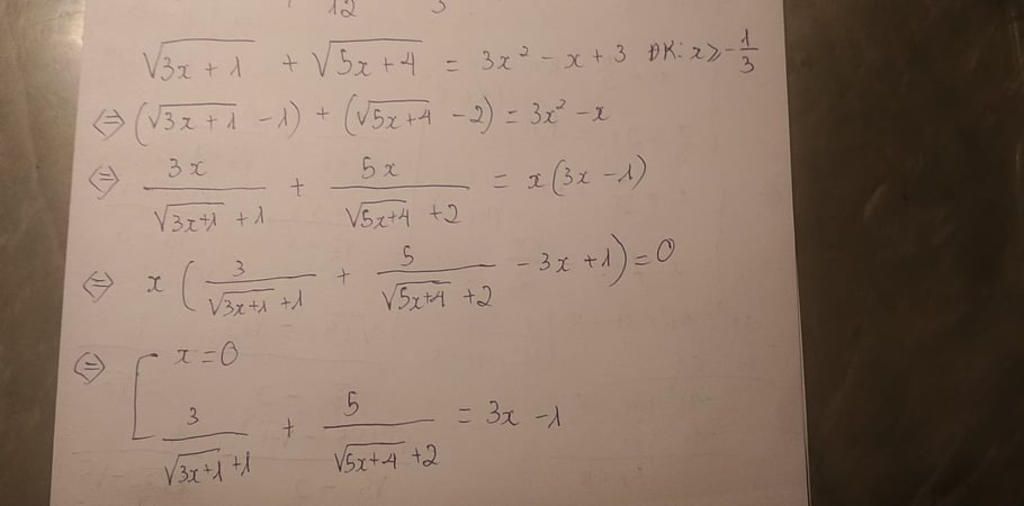 12 3
√(3x+1) + √(5x+4) = 3x² - x + 3 ĐK: x ≥ -1/3
⇔ (√(3x+1) - 1) + (√(5x+4) - 2) = 3x² - x
⇔ 3x/(√(3x+1) + 1) + 5x/(√(5x+4) + 2) = x(3x - 1)
⇔ x(3/(√(3x+1) + 1) + 5/(√(5x+4) + 2) - 3x + 1) = 0
⇔ [ x = 0
3/(√(3x+1) + 1) + 5/(√(5x+4) + 2) = 3x - 1